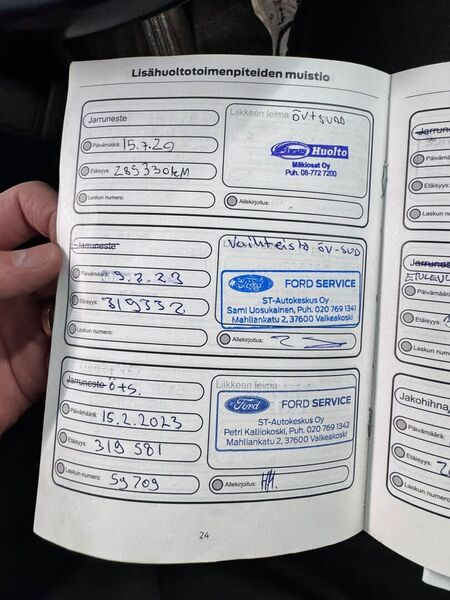 Lisähuoltotoimenpiteiden muistio
Jarruneste
Liikkeen leima ÖV+SUOD
Päivämäärä: 15.7.20
Etäisyys: 285330KM
Huolto
Mäkiosat Oy
Puh. 08-772 7200
Laskun numero:
Allekirjoitus:
Jarruneste
Vaihteisto ÖV-SUOD
Päivämäärä: 9.2.23
Etäisyys: 319332
Ford
FORD SERVICE
ST-Autokeskus Oy
Sami Uosukainen, Puh. 020 769 1341
Mahliankatu 2, 37600 Valkeakoski
Laskun numero:
Allekirjoitus:
Jarruneste Ö+S.
Liikkeen leima
Päivämäärä: 15.2.2023
Etäisyys: 319 581
Ford
FORD SERVICE
ST-Autokeskus Oy
Petri Kalliokoski, Puh. 020 769 1342
Mahliankatu 2, 37600 Valkeakoski
Laskun numero: 59709
Allekirjoitus:
24
Jarrun
Päivämä
Etäisyys:
Laskun n
Jarrune
Päivämää
Etäisyys:
Laskun nu
Jakohihna
Päivämäärä
Etäisyys:
Laskun nume